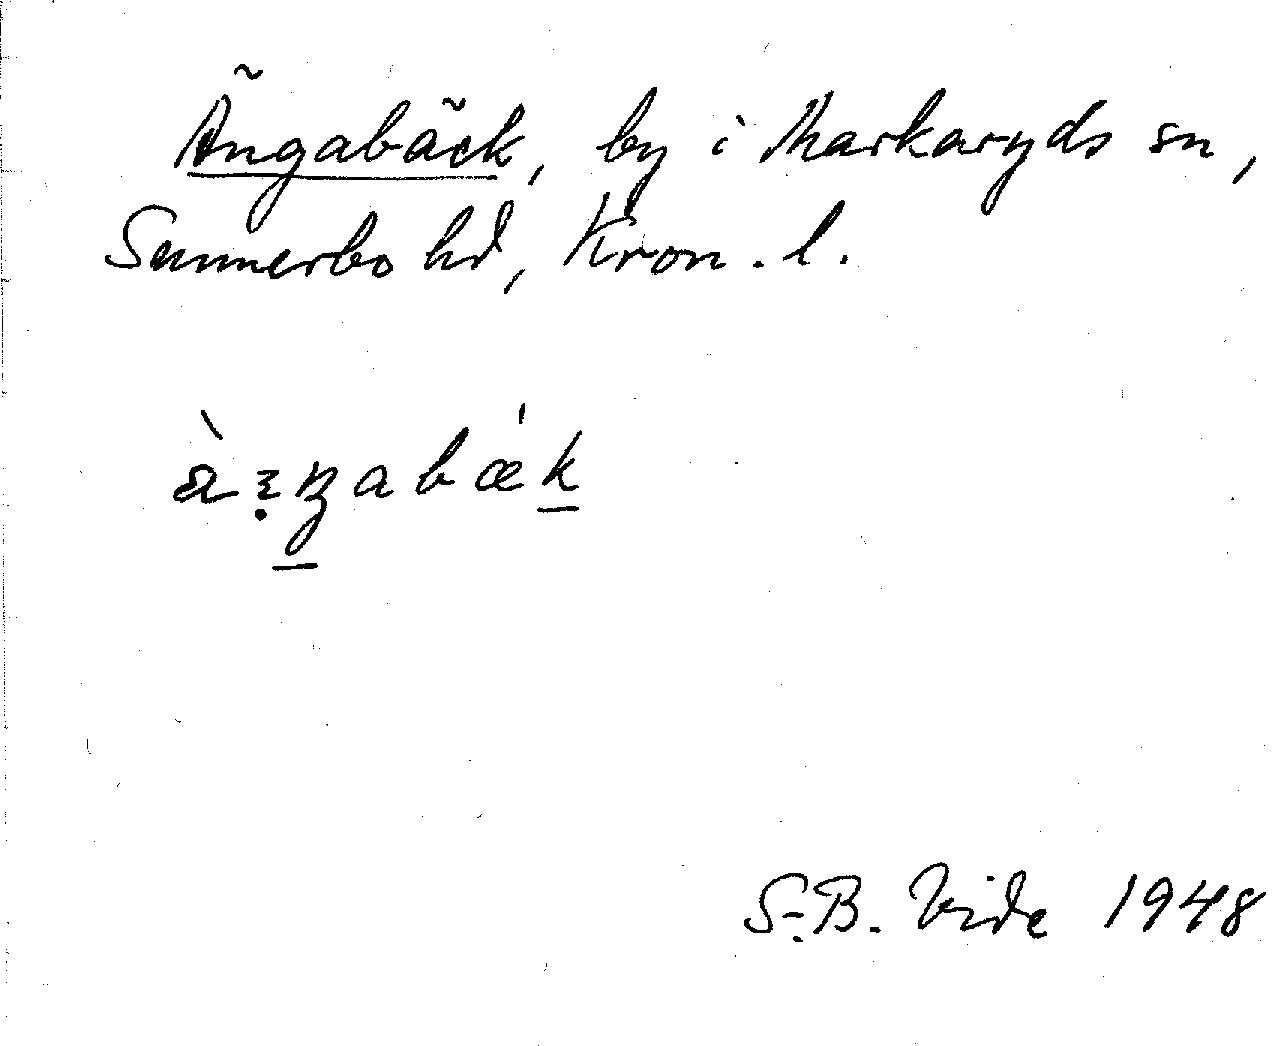 Ängabäck, by i Markaryds sn,
Sunnerbo hd, Kron. l.
S.-B. Vide 1948